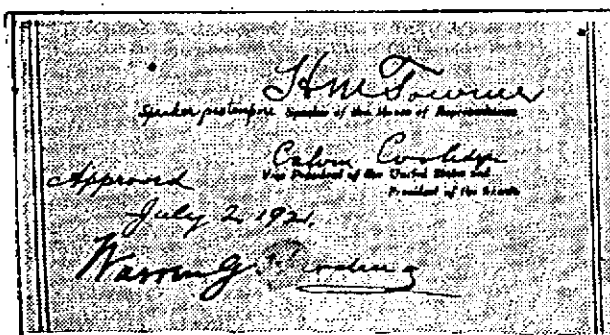 H M Towner
Speaker pro tempore Speaker of the House of Representatives.
Calvin Coolidge
Vice President of the United States and
President of the Senate
Approved
July 2, 1921.
Warren G. Harding